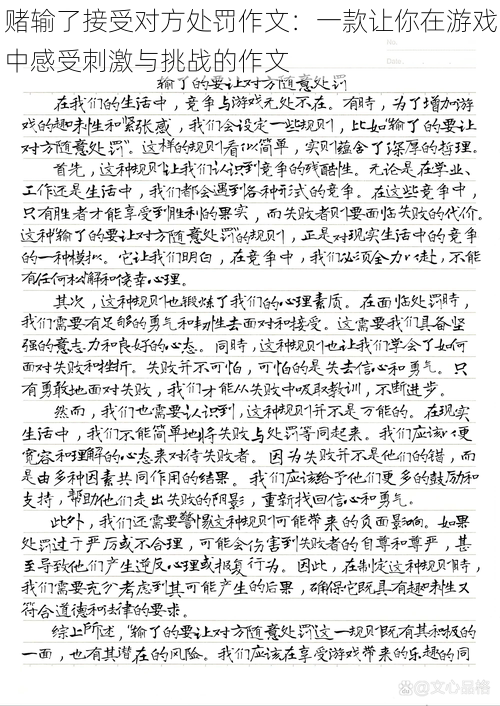 赌输了接受对方处罚作文：一款让你在游戏
中感受刺激与挑战的作文
No.
Date.
输了的要让对方随意处罚
在我们的生活中，竞争与游戏无处不在。有时，为了增加游
戏的趣味性和紧张感，我们会设定一些规则，比如“输了的要让
对方随意处罚”。这样的规则看似简单，实则蕴含了深厚的哲理。
首先，这种规则让我们认识到竞争的残酷性。无论是在学业、
工作还是生活中，我们都会遇到各种形式的竞争。在这些竞争中，
只有胜者才能享受到胜利的果实，而失败者则要面临失败的代价。
这种“输了的要让对方随意处罚”的规则，正是对现实生活中的竞争
的一种模拟。它让我们明白，在竞争中，我们必须全力以赴，不能
有任何松懈和侥幸心理。
其次，这种规则也锻炼了我们的心理素质。在面临处罚时，
我们需要有足够的勇气和韧性去面对和接受。这需要我们具备坚
强的意志力和良好的心态。同时，这种规则也让我们学会了如何
面对失败和挫折。失败并不可怕，可怕的是失去信心和勇气。只
有勇敢地面对失败，我们才能从失败中吸取教训，不断进步。
然而，我们也需要认识到，这种规则并不是万能的。在现实
生活中，我们不能简单地将失败与处罚等同起来。我们应该以更
宽容和理解的心态来对待失败者。因为失败并不是他们的错，而
是由多种因素共同作用的结果。我们应该给予他们更多的鼓励和
支持，帮助他们走出失败的阴影，重新找回信心和勇气。
此外，我们还需要警惕这种规则可能带来的负面影响。如果
处罚过于严厉或不合理，可能会伤害到失败者的自尊和尊严，甚
至导致他们产生逆反心理或报复行为。因此，在制定这种规则时，
我们需要充分考虑到其可能产生的后果，确保它既具有趣味性又
符合道德和法律的要求。
综上所述，“输了的要让对方随意处罚”这一规则既有其积极的
一面，也有其潜在的风险。我们应该在享受游戏带来的乐趣的同
文心品格